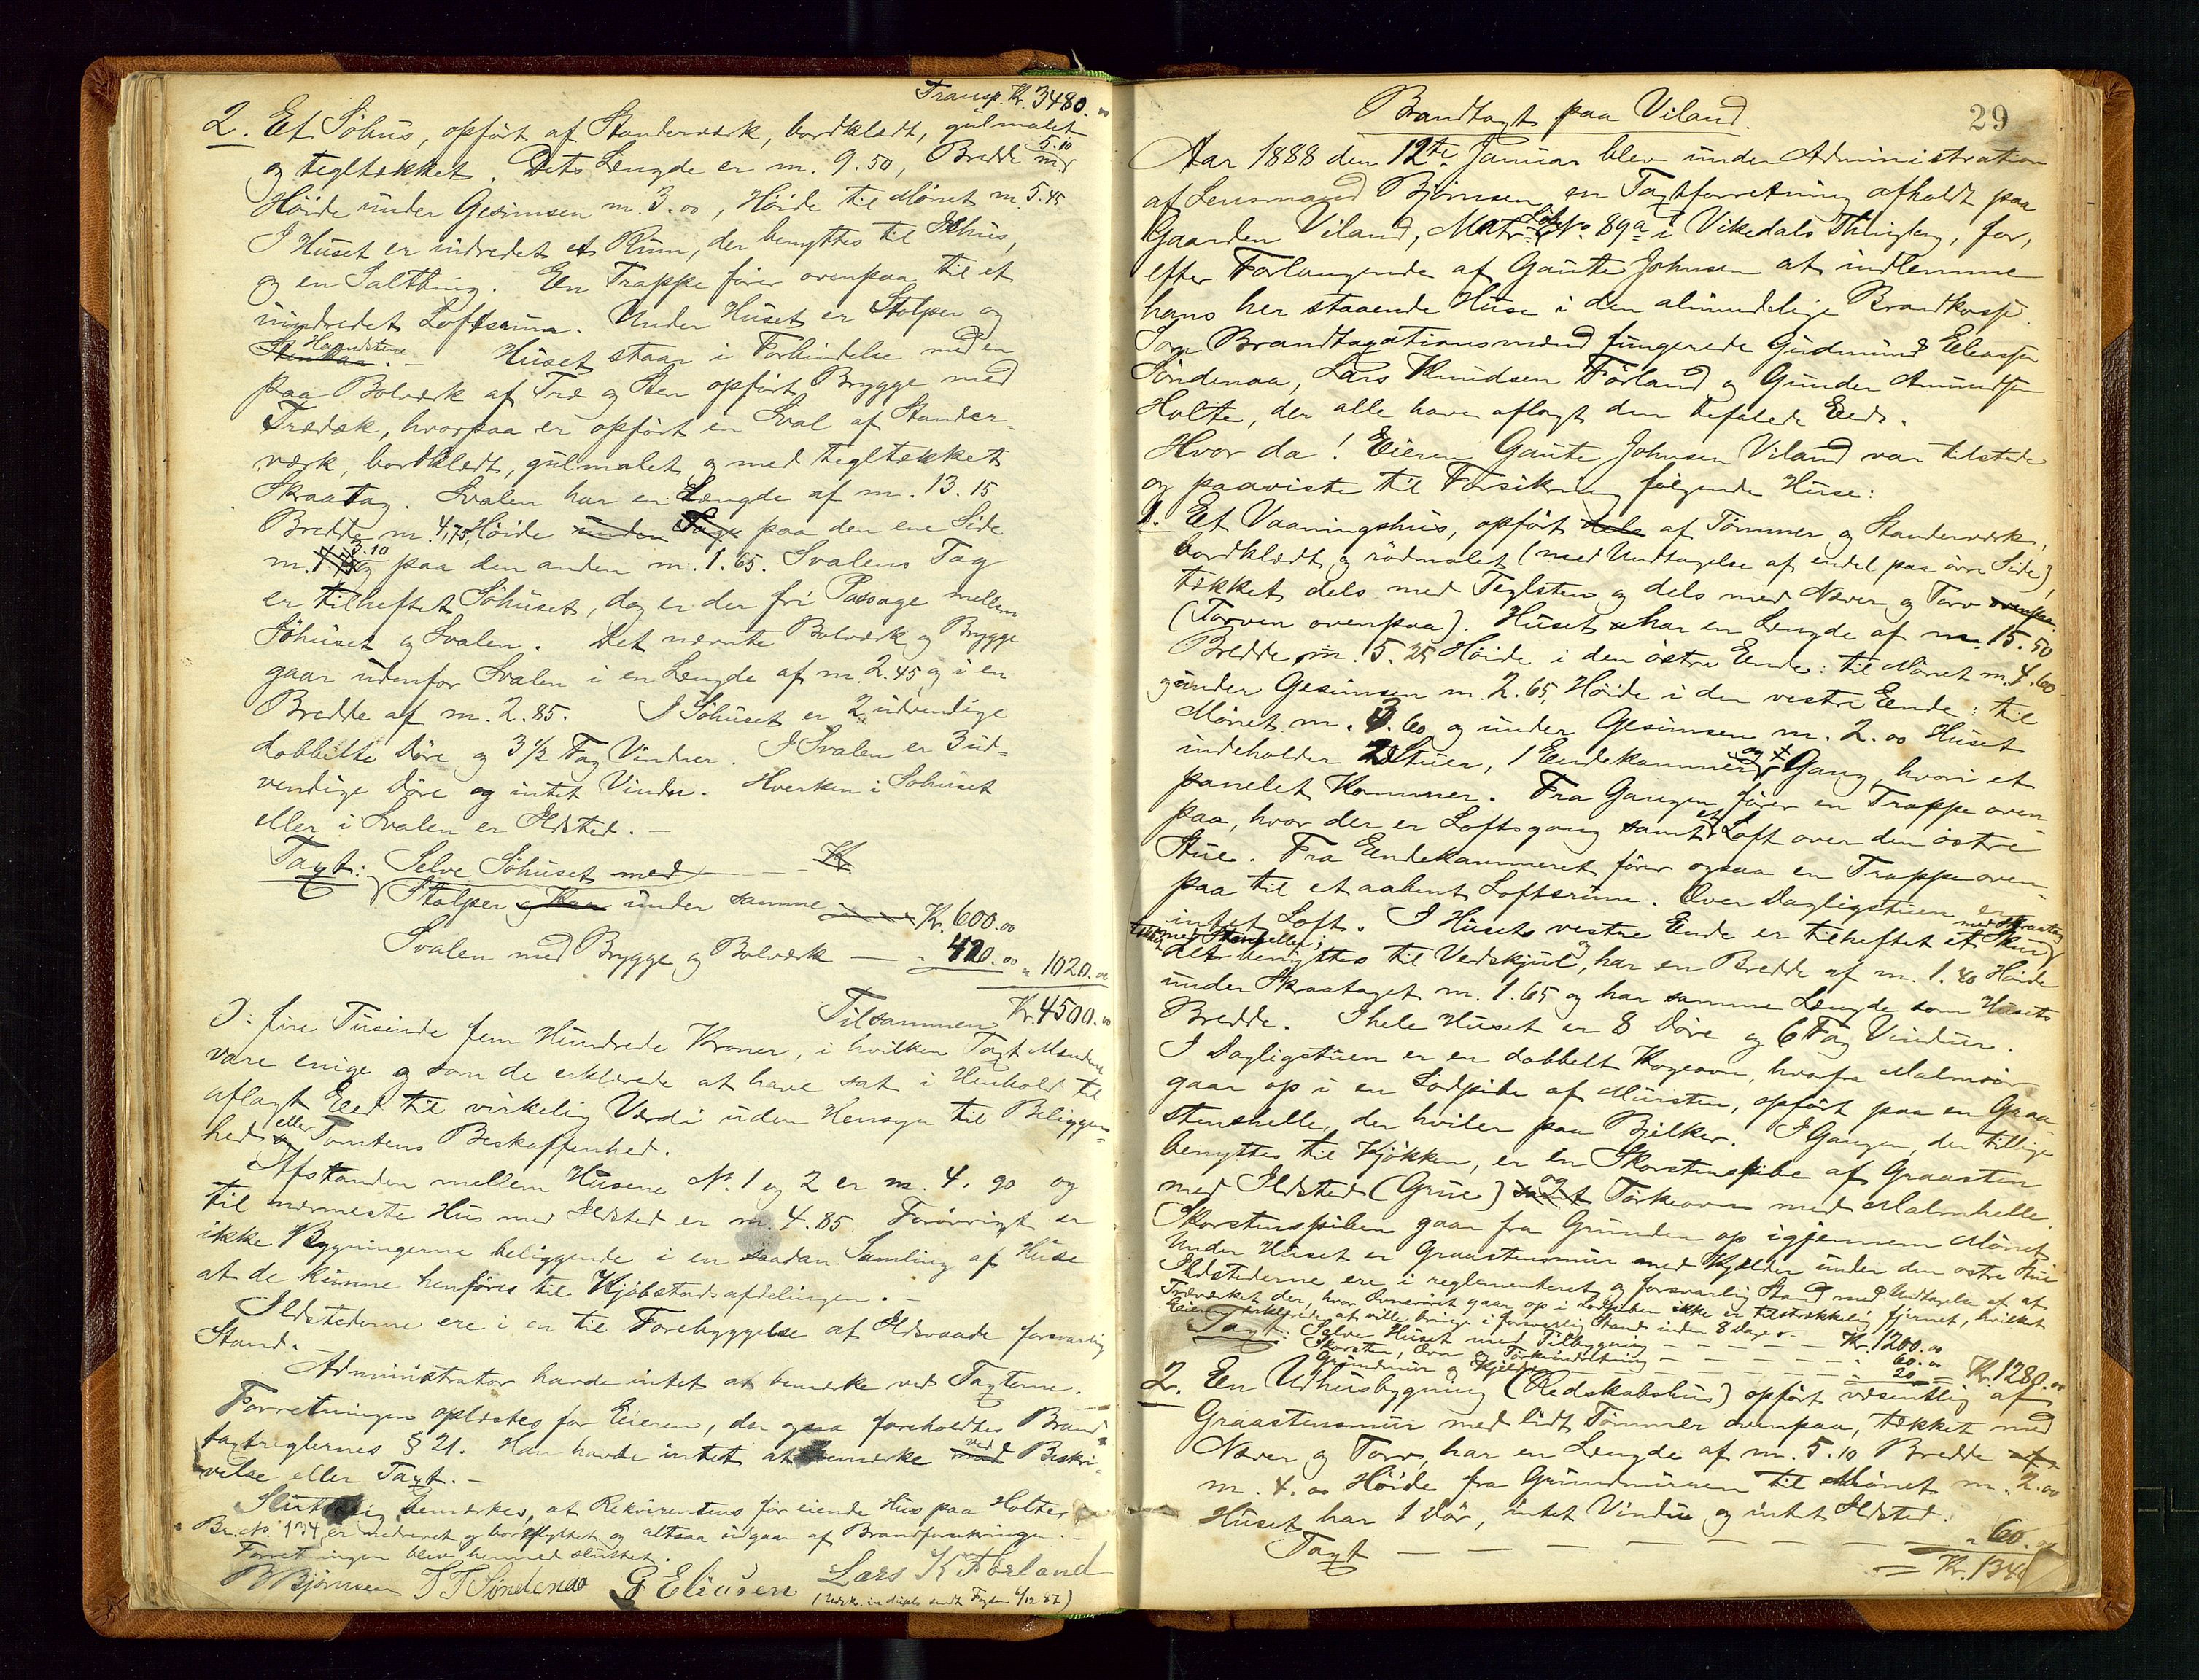 Transp. Kr. 3480.00
2. Et Söhus, opfört af Standerværk, bordklædt, gulmalet
og tegltækket. Dets Længde er m. 9.50, Bredde m. 5.10
Höide under Gesimsen m. 3.00, Höide til Mönet m. 5.45
I Huset er indredet et Rum, der benyttes til Ishus,
og en Saltbing. En Trappe förer ovenpaa til et
uindredet Loftsrum. Under Huset er Stolper og
Huset staar i Forbindelse med en
paa Bolværk af Træ og Sten opfört Brygge med
Trædæk, hvorpaa er opfört en Sval af Stander-
værk, bordklædt, gulmalet og med tegltækket
Skraatag. Svalen har en Længde af m. 13.15
Bredde m. 4,75, Höide under Taget paa den ene Side
m. 3.10 og paa den anden m. 1.65. Svalens Tag
er tilheftet Söhuset, dog er der fri Passage mellem
Söhuset og Svalen. Det nævnte Bolværk og Brygge
gaar udenfor Svalen i en Længde af m. 2.45 og i en
Bredde af m. 2.85. I Söhuset er 2 udvendige
dobbelte Döre og 3 1/2 Fag Vinduer. I Svalen er 3 ud-
vendige Döre og intet Vindu. Hverken i Söhuset
eller i Svalen er Ildsted. —
Taxt: Selve Söhuset med — — — Kr
Stolper og Kar under samme Kr. 600.00
Svalen med Brygge og Bolværk — " 420.00 " 1020.00
Tilsammen Kr. 4500.00
ɔ: fire Tusinde fem Hundrede Kroner, i hvilken Taxt Mændene
vare enige og som de erklærede at have sat i Henhold til
aflagt Eed til virkelig Værdi uden Hensyn til Beliggen-
hed eller Tomtens Beskaffenhed.
Afstanden mellem Husene No. 1 og 2 er m. 4.90 og
til nærmeste Hus med Ildsted er m. 4.85. Forövrigt er
ikke Bygningerne beliggende i en saadan Samling af Huse
at de kunne henföres til Kjöbstadsafdelingen. —
Ildstederne ere i en til Forebyggelse af Ildsvaade forsvarlig
Stand. —
Administrator havde intet at bemærke ved Taxterne.
Forretningen oplæstes for Eieren, der ogsaa foreholdtes Brand-
taxtreglernes § 21. Han havde intet at bemærke ved Beskri-
velse eller Taxt. —
Sluttelig bemærkes, at Rekvirentens för eiende Hus paa Holte
Br. No. 1734 er nedrevet og bortflyttet og altsaa udgaar af Brandforsikringen. —
Forretningen blev hermed sluttet.
B Björnsen T T Söndenaa G Eliasen Lars K Førland
(Udskr. in duplo sendt Fogden 4/12 87)
29
Brandtaxt paa Viland.
Aar 1888 den 12te Januar blev under Administration
af Lensmand Björnsen en Taxtforretning afholdt paa
Gaarden Viland, Matr. Löbe No. 89a i Vikedals Thinglag, for,
efter Forlangende af Gaute Johnsen at indlemme
hans her staaende Huse i den almindelige Brandkasse.
Som Brandtaxationsmænd fungerede Gudmund Eliassen
Söndenaa, Lars Knudsen Förland og Gunder Amundsen
Holte, der alle have aflagt den befalede Eed.
Hvor da! Eieren Gaute Johnsen Viland var tilstede
og paaviste til Forsikring følgende Huse:
1. Et Vaaningshus, opfört dels af Tömmer og Standerværk,
bordklædt og rödmalet (med Undtagelse af endel paa övre Side),
tækket dels med Teglsten og dels med Næver og Torv ovenpaa.
(Torven ovenpaa). Huset har en Længde af m. 15.50
Bredde m. 5.25 Höide i den östre Ende: til Mönet m. 4.60
og under Gesimsen m. 2.65, Höide i den vestre Ende: til
Mönet m. 3.60 og under Gesimsen m. 2.00 Huset
indeholder 2 Stuer, 1 Endekammer og Gang, hvori et
panelet Kammer. Fra Gangen förer en Trappe oven-
paa, hvor der er Loftsgang samt et Loft over den östre
Stue. Fra Endekammeret förer ogsaa en Trappe oven-
paa til et aabent Loftsrum. Over Dagligstuen er
intet Loft. I Husets vestre Ende er tilheftet et Skur med Skraatag
tækket med Stenheller;
det benyttes til Vedskjul og, har en Bredde af m. 1.40 Höide
under Skraataget m. 1.65 og har samme Længde som Husets
Bredde. I hele Huset er 8 Döre og 6 Fag Vinduer.
I Dagligstuen er en dobbelt Kogeovn, hvorfra Malmrör
gaar op i en Lodpibe af Mursten, opfört paa en Graa-
stenshelle, der hviler paa Bjelker. I Gangen, der tillige
benyttes til Kjökken, er en Skorstenspibe af Graasten
med Ildsted (Grue) og Törkeovn med Malmhelle.
Skorstenspiben gaar fra Grunden op igjennem Mönet.
Under Huset er Graastensmur med Kjelder under den östre Stue
Ildstederne ere i reglementeret og forsvarlig Stand med Undtagelse af at
Træværket der, hvor Ovnsröret gaar op i Lodpiben ikke er tilstrækkelig fjernet, hvilket
Eieren erklærede at ville bringe i forsvarlig Stand inden 8 Dage. —
Taxt: Selve Huset med Tilbygning — — — Kr. 1200.00
Skorsten, Ovn og Törkeindretning — — — " 60.00
Grundmur og Kjelder — — — " 20.00 = Kr. 1280.00
2. En Udhusbygning (Redskabshus) opfört væsentlig af
Graastensmur med lidt Tömmer ovenpaa, tækket med
Næver og Torv, har en Længde af m. 5.10 Bredde af
m. 4.00 Höide fra Grundmuren til Mönet m. 2.00
Huset har 1 Dör, intet Vindu og intet Ildsted.
Taxt — — — — — — " 60.00
= Kr. 134